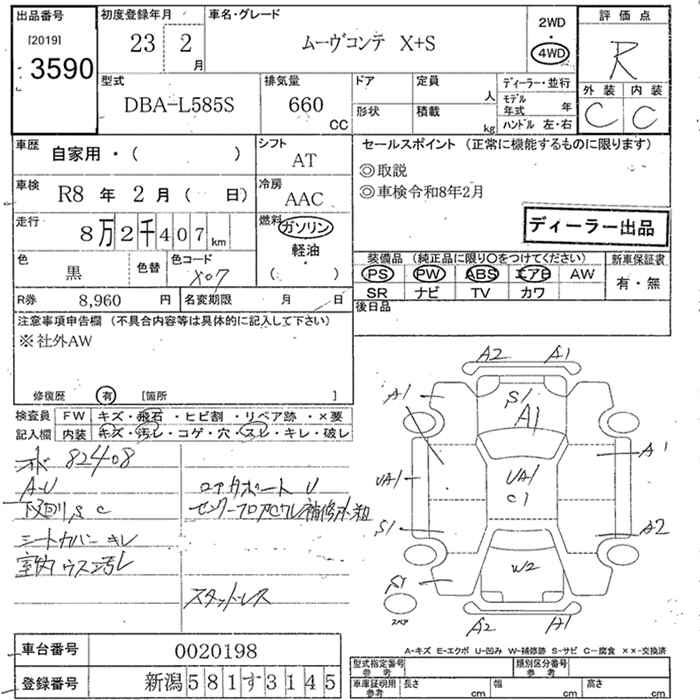 出品番号
[2019]
3590
初度登録年月
23 2
月
車名・グレード
ムーヴコンテ X+S
2WD
・
4WD
評価点
R
外装 内装
C C
型式
DBA-L585S
排気量
660
CC
ドア 定員
人
形状 積載
kg
ディーラー・並行
モデル年式 年
ハンドル 左・右
車歴
自家用・( )
シフト
AT
車検
R8 年 2 月 ( 日)
冷房
AAC
走行
8万2千407km
燃料
ガソリン
軽油
・
( )
色
黒
色替
色コード
X07
R券 8,960 円
名変期限 月 日
セールスポイント (正常に機能するものに限ります)
◎取説
◎車検令和8年2月
ディーラー出品
装備品 (純正品に限り○をつけてください)
PS PW ABS エアB AW
SR ナビ TV カワ
新車保証書
有・無
後日品
注意事項申告欄 (不具合内容等は具体的に記入して下さい)
※社外AW
修復歴 有 [箇所 ]
検査員記入欄
FW キズ・飛石・ヒビ割・リペア跡・×要
内装 キズ・汚レ・コゲ・穴・スレ・キレ・破レ
82408
A-U
下廻りS C
シートカバーキレ
室内ウスヨ汚レ
ロアサポート U
センターフロアCクレ補修
スタッドレス
A2 A1
A1
S1
A1
A1
UA1
UA1
C1
S1
A2
W2
スペア
A2 A1
A-キズ E-エクボ U-凹み W-補修跡 S-サビ C-腐食 ××-交換済
車台番号 0020198
登録番号 新潟581す3145
型式指定番号
参考
類別区分番号
参考
車庫証明用
参考
長さ cm
幅 cm
高さ cm